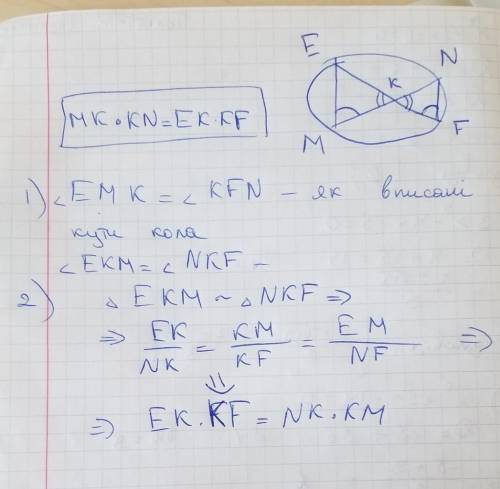 E
N
K
M
F
MK·KN=EK·KF
1) ∠EMK = ∠KFN – як вписані
кути кола
∠EKM = ∠NKF –
2) △EKM ~ △NKF ⇒
⇒ EK/NK = KM/KF = EM/NF ⇒
⇓
⇒ EK·KF = NK·KM